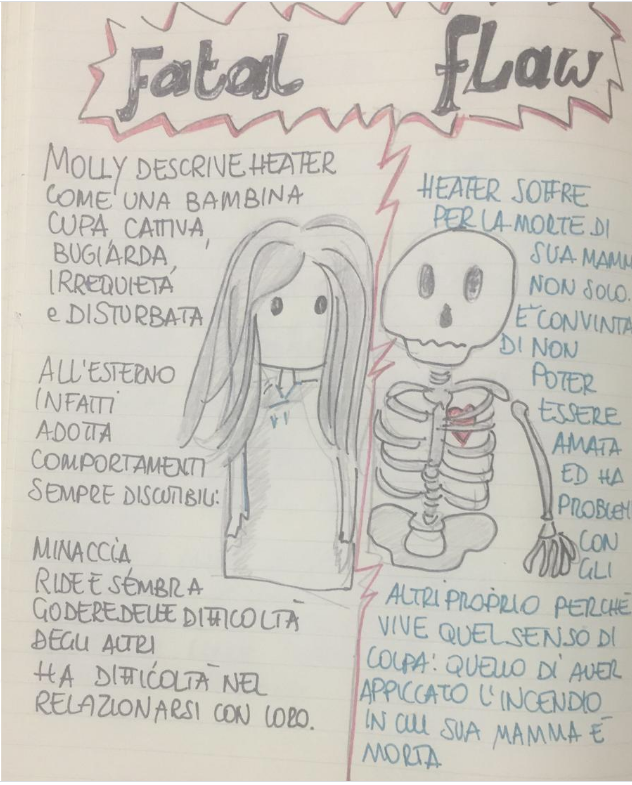 Fatal Flaw
MOLLY DESCRIVE HEATER
COME UNA BAMBINA
CUPA CATTIVA,
BUGIARDA,
IRREQUIETA
e DISTURBATA
ALL'ESTERNO
INFATTI
ADOTTA
COMPORTAMENTI
SEMPRE DISCUTIBILI:
MINACCIA
RIDE E SEMBRA
GODERE DELLE DIFFICOLTÀ
DEGLI ALTRI
HA DIFFICOLTÀ NEL
RELAZIONARSI CON LORO.
HEATER SOFFRE
PER LA MORTE DI
SUA MAMM
NON SOLO.
È CONVINTA
DI NON
POTER
ESSERE
AMATA
ED HA
PROBLEM
CON
GLI
ALTRI PROPRIO PERCHÈ
VIVE QUEL SENSO DI
COLPA: QUELLO DI AVER
APPICCATO L'INCENDIO
IN CUI SUA MAMMA È
MORTA